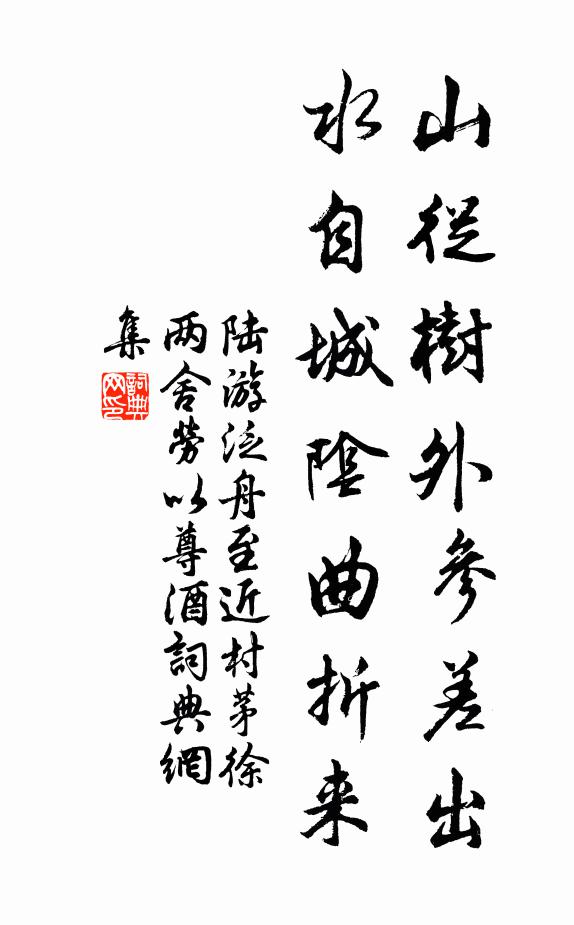 山從樹外參差出
水自城陰曲折来
陆游泛舟至近村茅徐
两舍勞以尊酒詞典網
集
詞典
网印